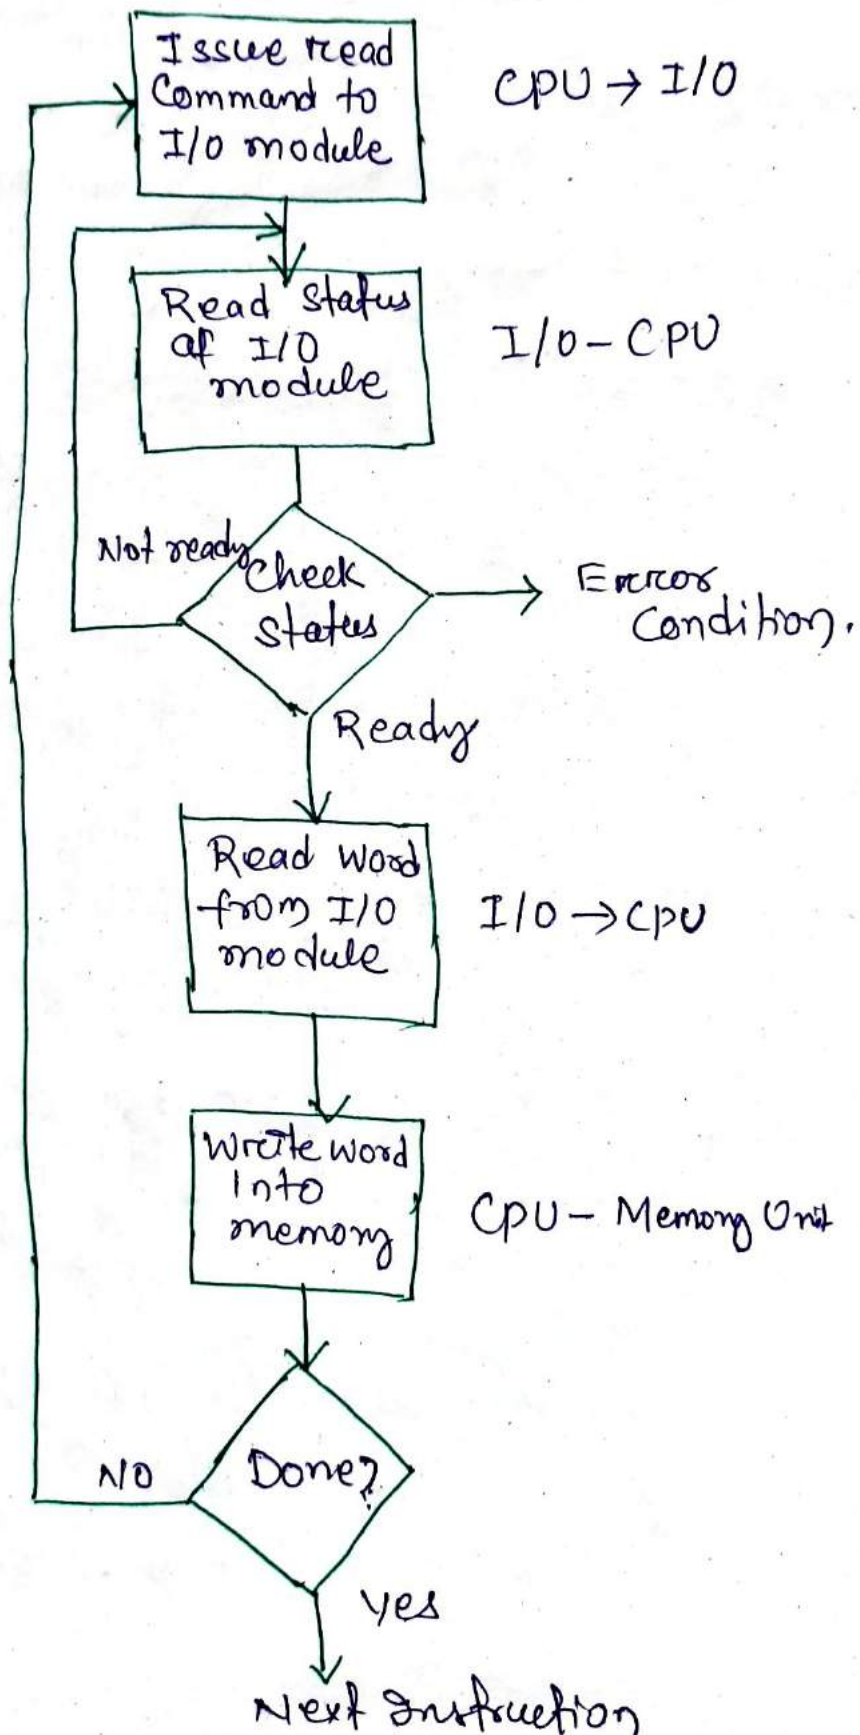 Issue read
Command to
I/O module
CPU → I/O
Read Status
of I/O
module
I/O - CPU
Not ready
Check
Status
Error
Condition.
Ready
Read Word
from I/O
module
I/O → CPU
Write word
Into
memory
CPU - Memory Unit
Done?
NO
Yes
Next Instruction